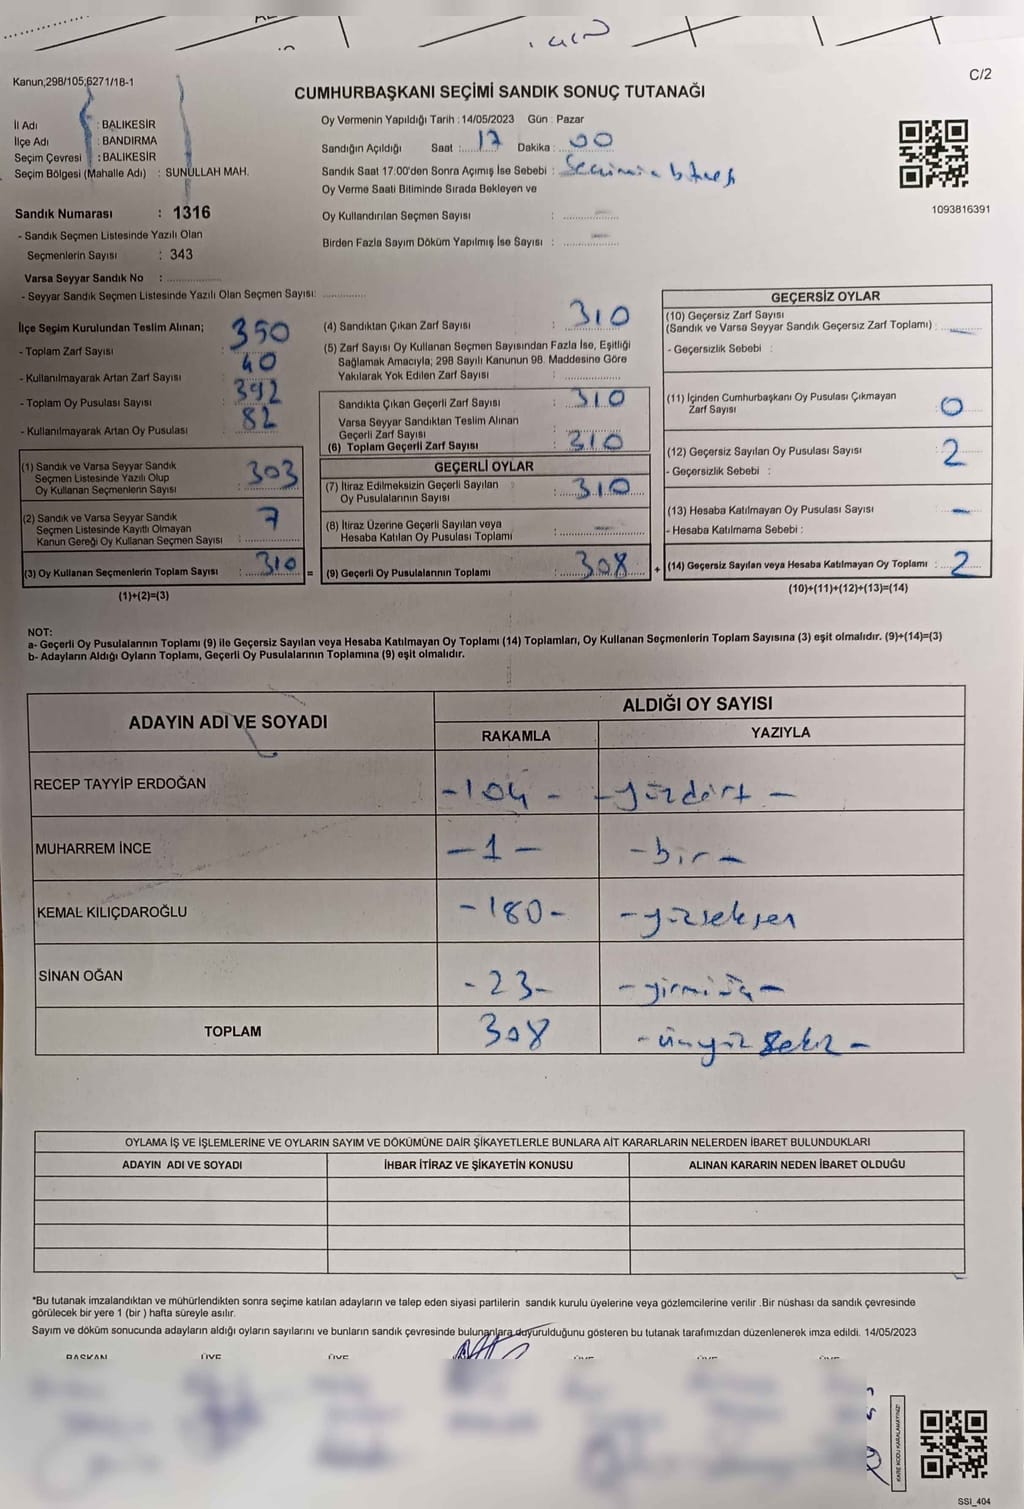 Kanun,298/105;6271/18-1
C/2
CUMHURBAŞKANI SEÇİMİ SANDIK SONUÇ TUTANAĞI
İl Adı : BALIKESİR
İlçe Adı : BANDIRMA
Seçim Çevresi : BALIKESİR
Seçim Bölgesi (Mahalle Adı) : SUNULLAH MAH.
Sandık Numarası : 1316
- Sandık Seçmen Listesinde Yazılı Olan
Seçmenlerin Sayısı : 343
Varsa Seyyar Sandık No :
- Seyyar Sandık Seçmen Listesinde Yazılı Olan Seçmen Sayısı:
Oy Vermenin Yapıldığı Tarih : 14/05/2023 Gün : Pazar
Sandığın Açıldığı Saat : 17 Dakika : 00
Sandık Saat 17:00'den Sonra Açımış İse Sebebi :
Oy Verme Saati Bitiminde Sırada Bekleyen ve
Oy Kullandırılan Seçmen Sayısı : —
Birden Fazla Sayım Döküm Yapılmış İse Sayısı : —
1093816391
İlçe Seçim Kurulundan Teslim Alınan;
- Toplam Zarf Sayısı 350
- Kullanılmayarak Artan Zarf Sayısı 40
- Toplam Oy Pusulası Sayısı 392
- Kullanılmayarak Artan Oy Pusulası 82
(1) Sandık ve Varsa Seyyar Sandık
Seçmen Listesinde Yazılı Olup
Oy Kullanan Seçmenlerin Sayısı 303
(2) Sandık ve Varsa Seyyar Sandık
Seçmen Listesinde Kayıtlı Olmayan
Kanun Gereği Oy Kullanan Seçmen Sayısı : 7
(3) Oy Kullanan Seçmenlerin Toplam Sayısı : 310 =
(1)+(2)=(3)
(4) Sandıktan Çıkan Zarf Sayısı : 310
(5) Zarf Sayısı Oy Kullanan Seçmen Sayısından Fazla İse, Eşitliği
Sağlamak Amacıyla; 298 Sayılı Kanunun 98. Maddesine Göre
Yakılarak Yok Edilen Zarf Sayısı :
Sandıkta Çıkan Geçerli Zarf Sayısı : 310
Varsa Seyyar Sandıktan Teslim Alınan
Geçerli Zarf Sayısı :
(6) Toplam Geçerli Zarf Sayısı : 310
GEÇERLİ OYLAR
(7) İtiraz Edilmeksizin Geçerli Sayılan
Oy Pusulalarının Sayısı : 310
(8) İtiraz Üzerine Geçerli Sayılan veya
Hesaba Katılan Oy Pusulası Toplamı : —
(9) Geçerli Oy Pusulalarının Toplamı : 308 +
GEÇERSİZ OYLAR
(10) Geçersiz Zarf Sayısı
(Sandık ve Varsa Seyyar Sandık Geçersiz Zarf Toplamı) : —
- Geçersizlik Sebebi :
(11) İçinden Cumhurbaşkanı Oy Pusulası Çıkmayan
Zarf Sayısı : 0
(12) Geçersiz Sayılan Oy Pusulası Sayısı : 2
- Geçersizlik Sebebi :
(13) Hesaba Katılmayan Oy Pusulası Sayısı : —
- Hesaba Katılmama Sebebi :
(14) Geçersiz Sayılan veya Hesaba Katılmayan Oy Toplamı : 2
(10)+(11)+(12)+(13)=(14)
NOT:
a- Geçerli Oy Pusulalarının Toplamı (9) ile Geçersiz Sayılan veya Hesaba Katılmayan Oy Toplamı (14) Toplamları, Oy Kullanan Seçmenlerin Toplam Sayısına (3) eşit olmalıdır. (9)+(14)=(3)
b- Adayların Aldığı Oyların Toplamı, Geçerli Oy Pusulalarının Toplamına (9) eşit olmalıdır.
ADAYIN ADI VE SOYADI ALDIĞI OY SAYISI
RAKAMLA YAZIYLA
RECEP TAYYİP ERDOĞAN -104- -yüzdört-
MUHARREM İNCE -1- -bir-
KEMAL KILIÇDAROĞLU -180- -yüzseksen
SİNAN OĞAN -23- -yirmiüç-
TOPLAM 308 -üçyüz sekiz-
OYLAMA İŞ VE İŞLEMLERİNE VE OYLARIN SAYIM VE DÖKÜMÜNE DAİR ŞİKAYETLERLE BUNLARA AİT KARARLARIN NELERDEN İBARET BULUNDUKLARI
ADAYIN ADI VE SOYADI İHBAR İTİRAZ VE ŞİKAYETİN KONUSU ALINAN KARARIN NEDEN İBARET OLDUĞU
*Bu tutanak imzalandıktan ve mühürlendikten sonra seçime katılan adayların ve talep eden siyasi partilerin sandık kurulu üyelerine veya gözlemcilerine verilir .Bir nüshası da sandık çevresinde
görülecek bir yere 1 (bir ) hafta süreyle asılır.
Sayım ve döküm sonucunda adayların aldığı oyların sayılarını ve bunların sandık çevresinde bulunanlara duyurulduğunu gösteren bu tutanak tarafımızdan düzenlenerek imza edildi. 14/05/2023
BAŞKAN ÜYE ÜYE ÜYE ÜYE ÜYE
KARE KODU KARALAMAYINIZ!
SSI_404